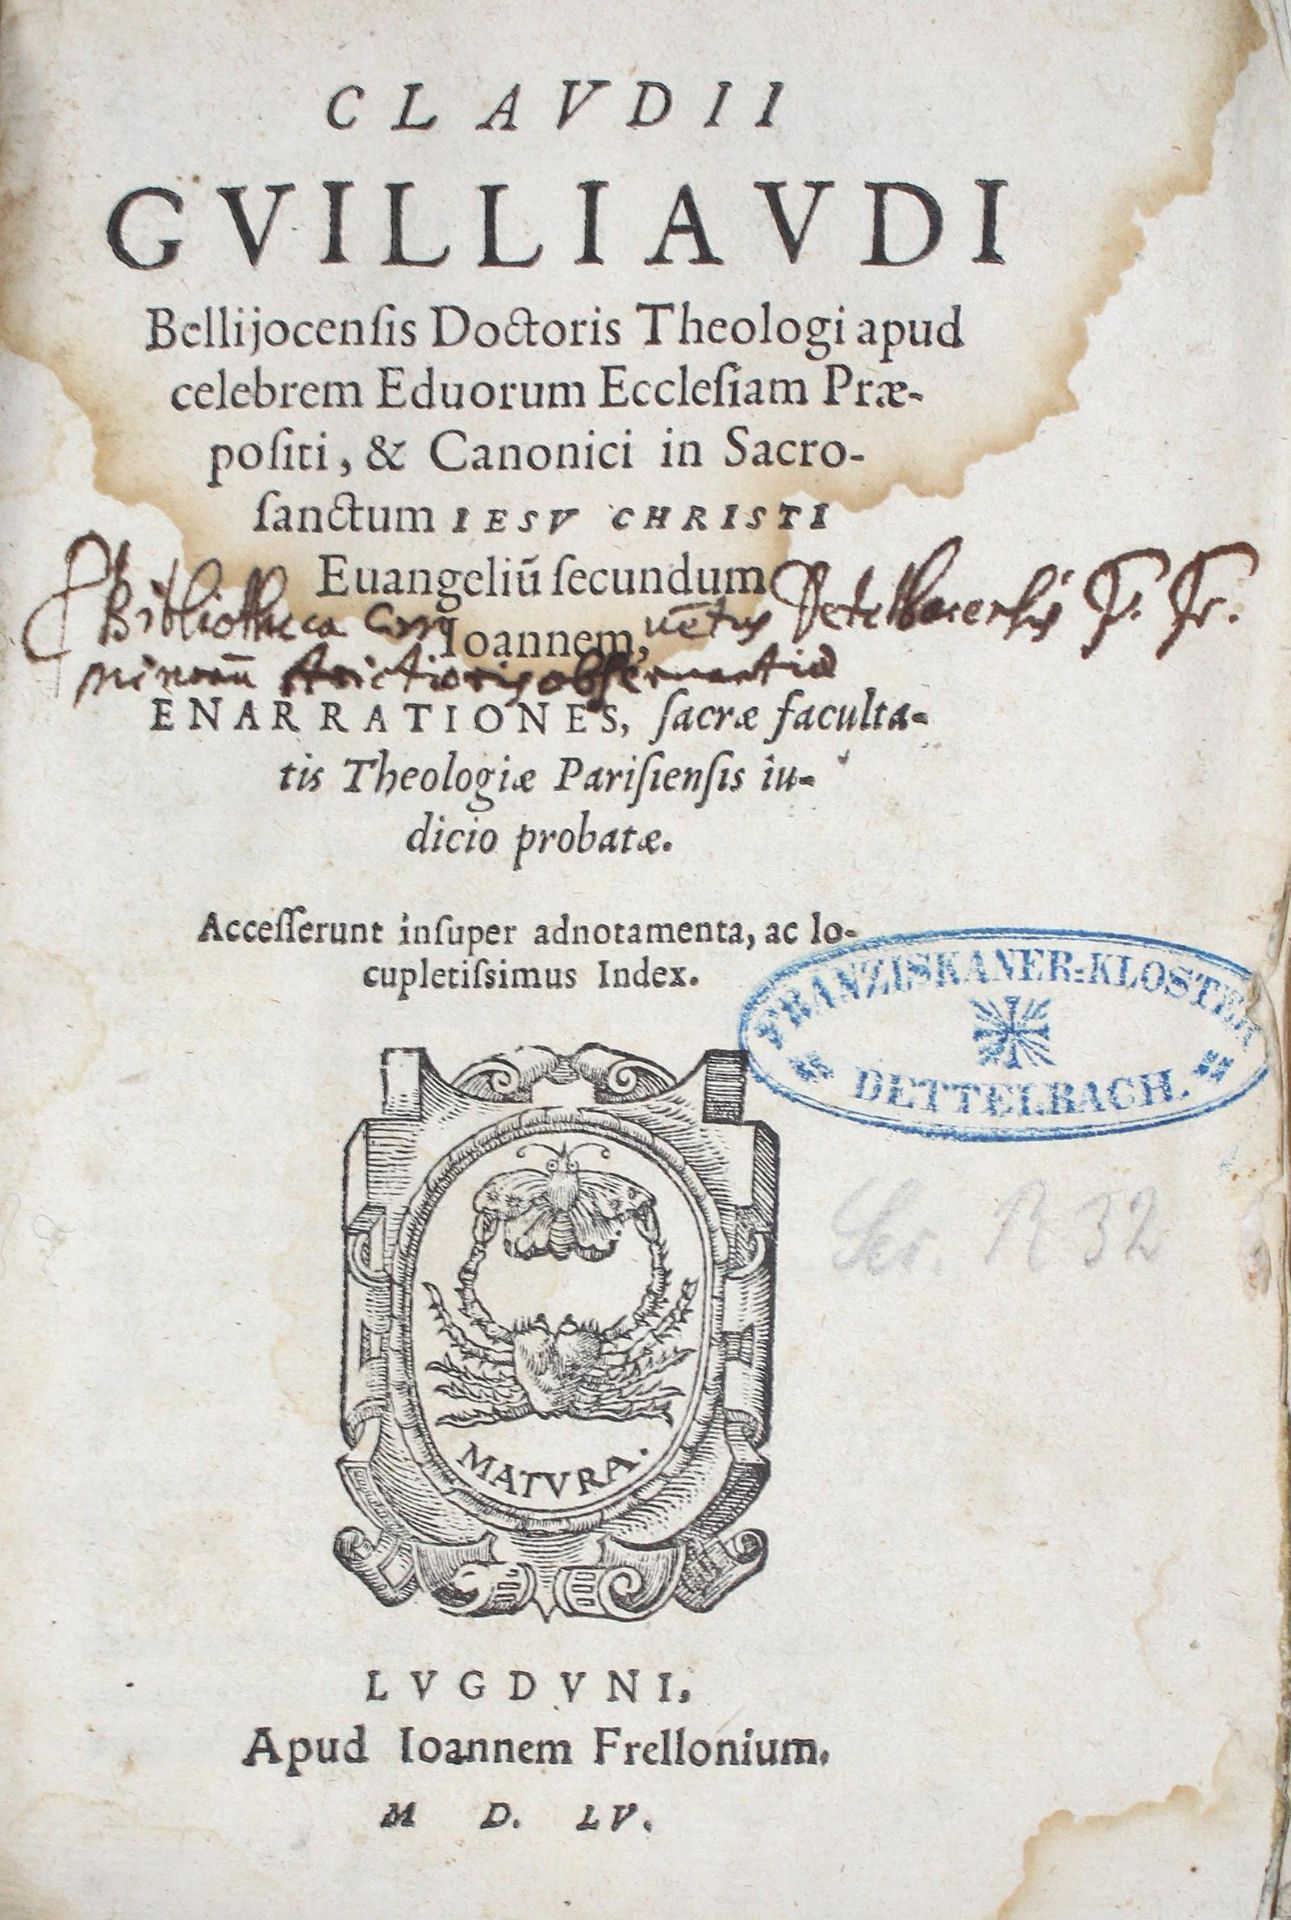 CLAVDII
GVILLIAVDI
Bellijocenſis Doctoris Theologi apud
celebrem Eduorum Eccleſiam Præ-
poſiti, & Canonici in Sacro-
ſanctum IESV CHRISTI
Euangeliū ſecundum
Bibliotheca Conventus Detelbacensis F. Fr.
Ioannem,
minorū strictioris observantiæ
ENARRATIONES, ſacræ faculta-
tis Theologiæ Pariſienſis iu-
dicio probatæ.
Acceſſerunt inſuper adnotamenta, ac lo-
cupletiſsimus Index.
FRANZISKANER-KLOSTER
DETTELBACH.
R 32
MATVRA.
LVGDVNI,
Apud Ioannem Frellonium.
M D. LV.